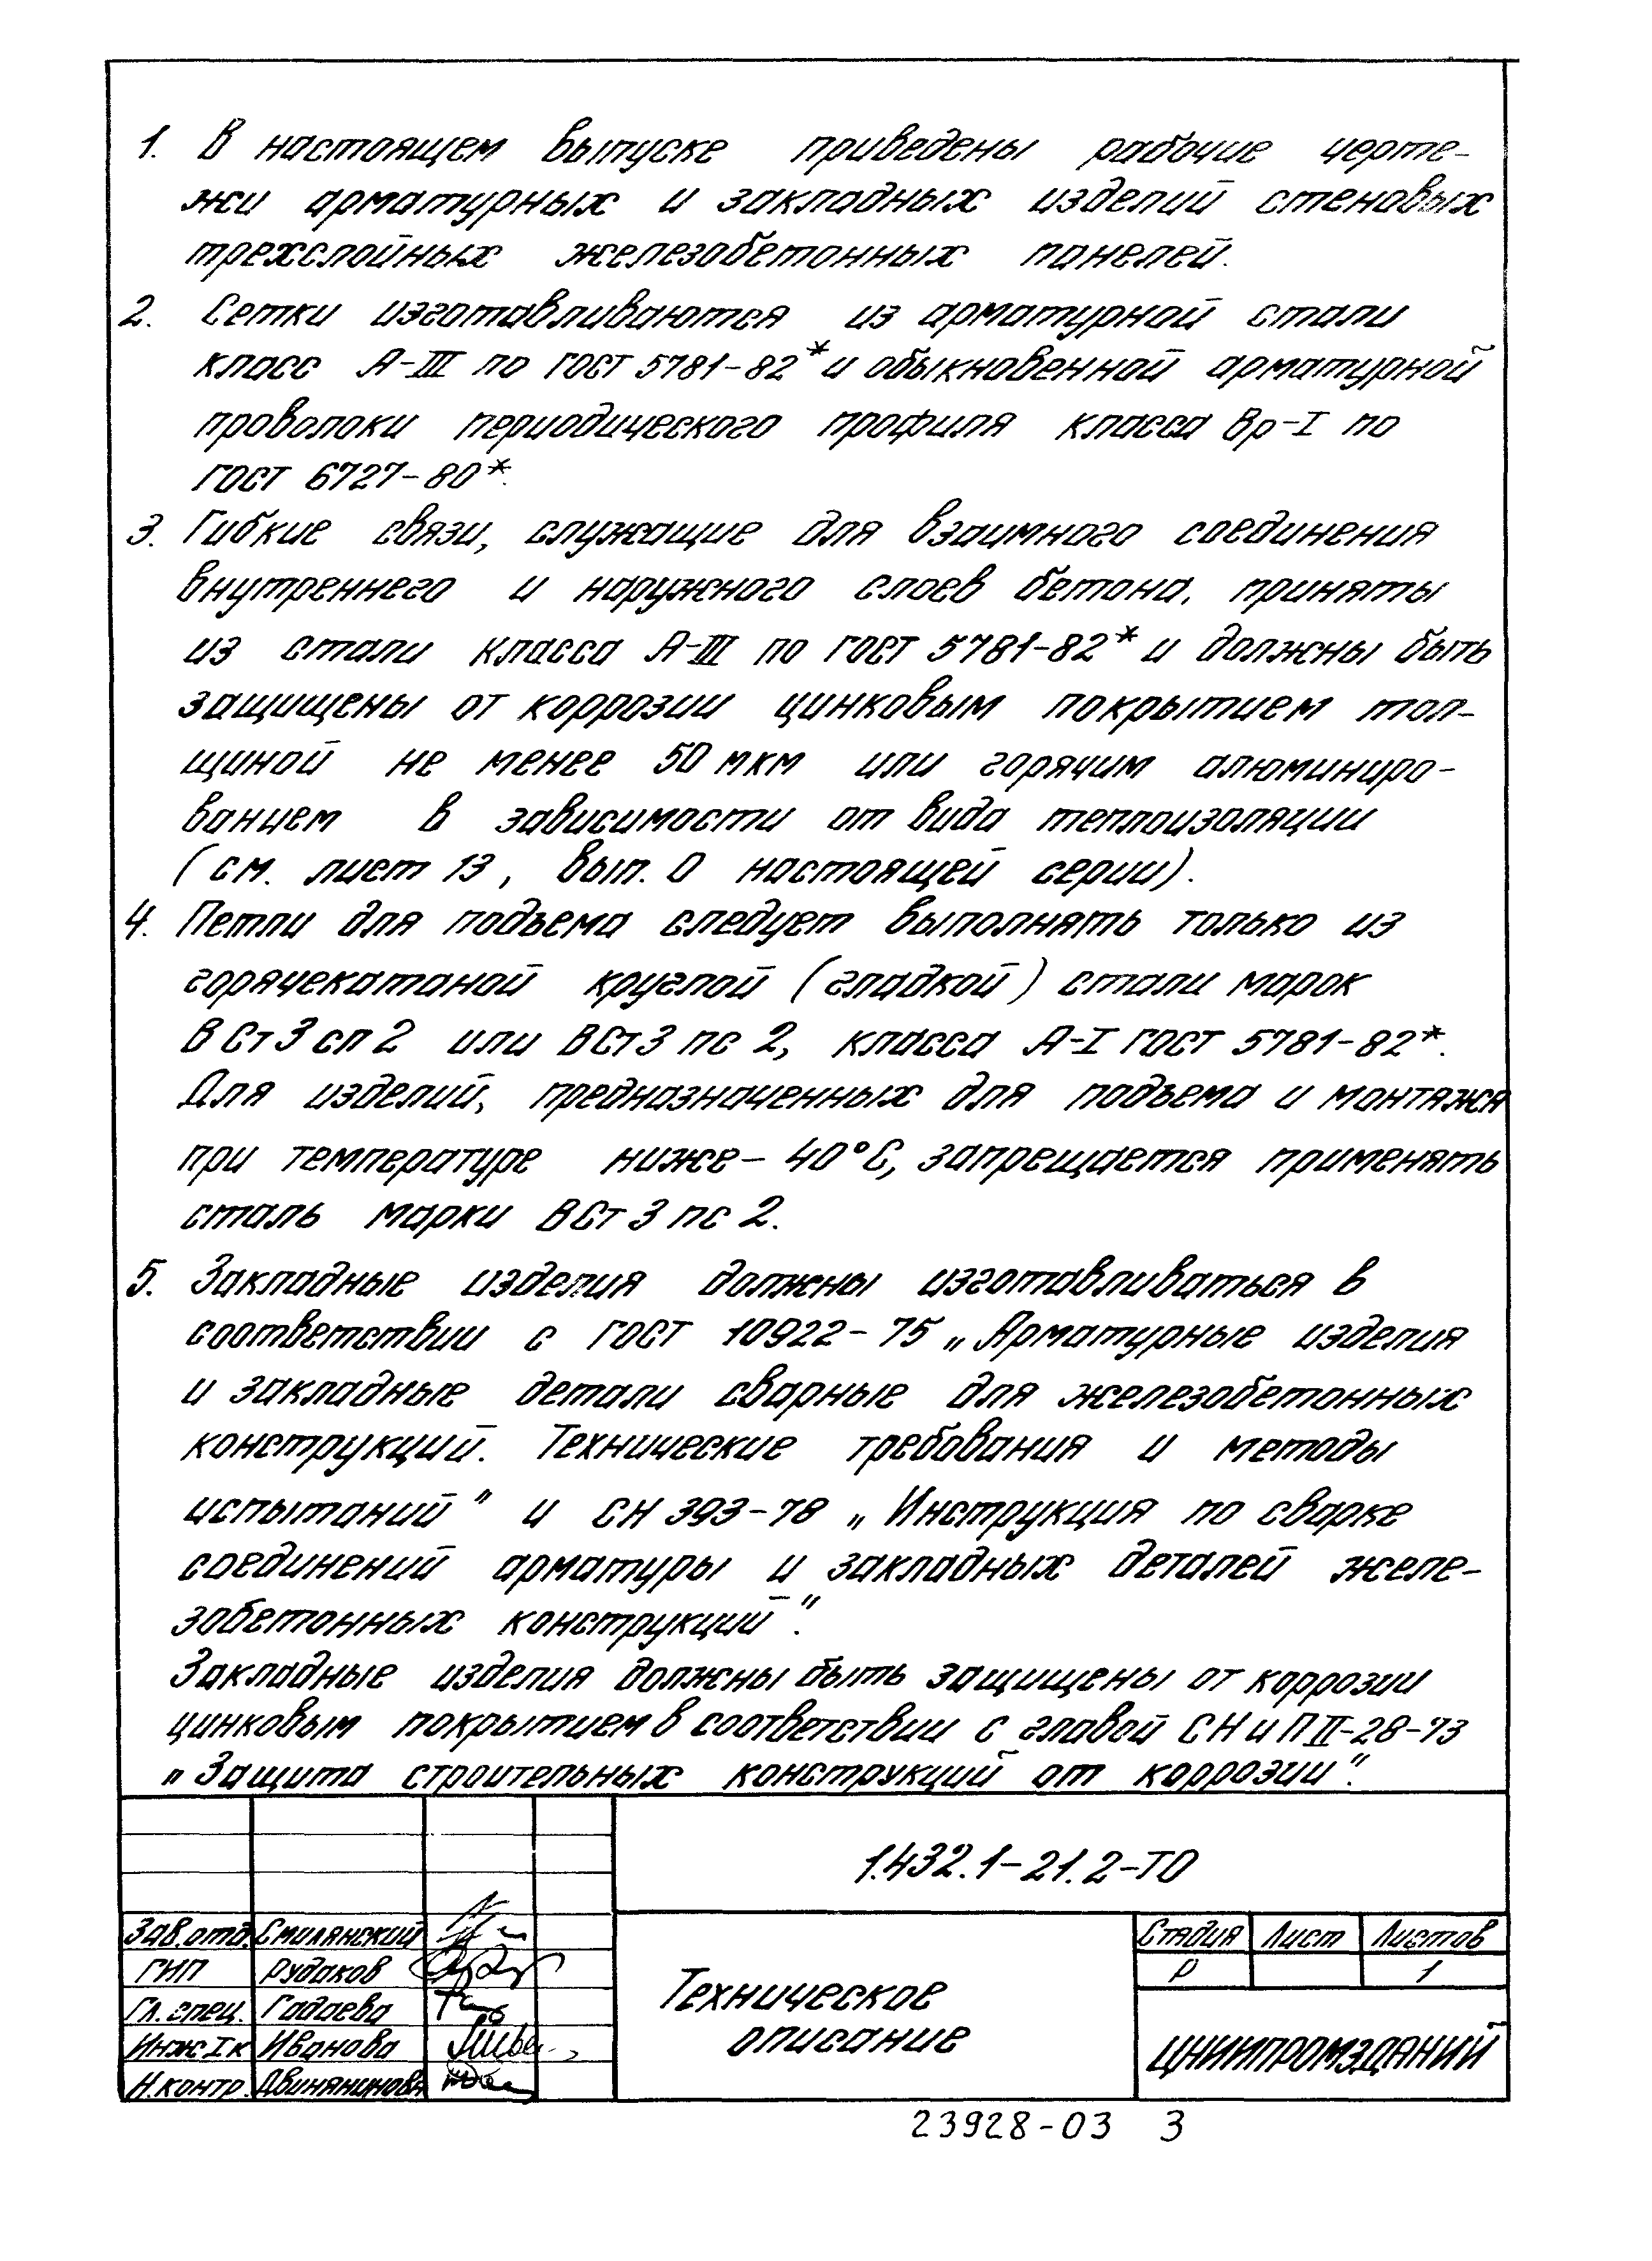 1. В настоящем выпуске приведены рабочие черте-
жи арматурных и закладных изделий стеновых
трехслойных железобетонных панелей.
2. Сетки изготавливаются из арматурной стали
класс А-III по ГОСТ 5781-82* и обыкновенной арматурной
проволоки периодического профиля класса Вр-I по
ГОСТ 6727-80*.
3. Гибкие связи, служащие для взаимного соединения
внутреннего и наружного слоев бетона, приняты
из стали класса А-III по ГОСТ 5781-82* и должны быть
защищены от коррозии цинковым покрытием тол-
щиной не менее 50 мкм или горячим алюминиро-
ванием в зависимости от вида теплоизоляции
(см. лист 13, вып. 0 настоящей серии).
4. Петли для подъема следует выполнять только из
горячекатаной круглой (гладкой) стали марок
ВСт3сп2 или ВСт3пс2, класса А-I ГОСТ 5781-82*.
Для изделий, предназначенных для подъема и монтажа
при температуре ниже - 40°С, запрещается применять
сталь марки ВСт3пс2.
5. Закладные изделия должны изготавливаться в
соответствии с ГОСТ 10922-75 „Арматурные изделия
и закладные детали сварные для железобетонных
конструкций. Технические требования и методы
испытаний" и СН 393-78 „Инструкция по сварке
соединений арматуры и закладных деталей желе-
зобетонных конструкций".
Закладные изделия должны быть защищены от коррозии
цинковым покрытием в соответствии с главой СНиП II-28-73
„Защита строительных конструкций от коррозии".
1.432.1-21.2-ТО
Зав.отд. Смилянский
ГИП Рудаков
Гл.спец. Гадаева
Инж I к Иванова
Н.контр. Двинянинова
Техническое
описание
Стадия Лист Листов
Р 1
ЦНИИПРОМЗДАНИЙ
23928-03 3